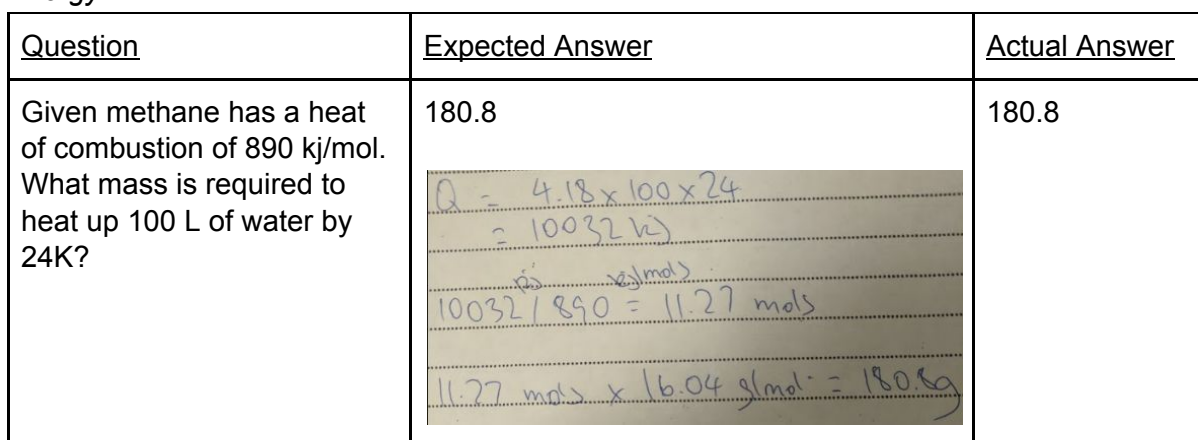 Question
Expected Answer
Actual Answer
Given methane has a heat
of combustion of 890 kj/mol.
What mass is required to
heat up 100 L of water by
24K?
180.8
Q = 4.18 x 100 x 24
= 10032 kj
kj/mols
10032 / 890 = 11.27 mols
11.27 mols x 16.04 g/mol = 180.8g
180.8